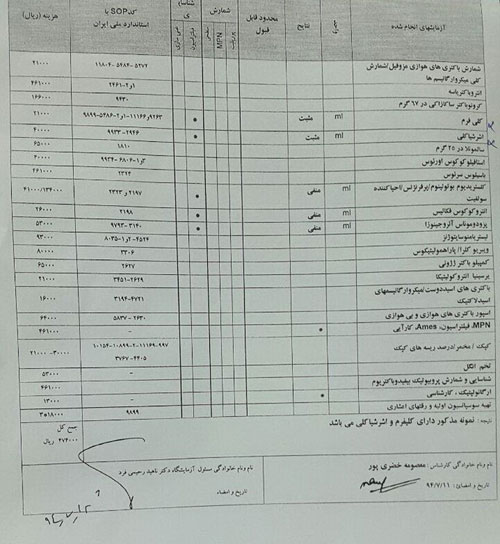 آزمایشهای انجام شده حجم نتایج محدود قابل قبول شمارش کدSOP یا استاندارد ملی ایران هزینه (ریال)
MPN
شمارش باکتری های هوازی مزوفیل/شمارش کلی میکروارگانیسم ها ۵۲۷۲-۵۴۸۴-۱۱۸۰۴ ۲۱۰۰۰
انتروباکتریاسه ۱و۲-۲۴۶۱ ۴۶۱۰۰۰
کرونوباکتر ساکازاکی در ۶۷ گرم ۹۴۳۰ ۱۶۶۰۰۰
کلی فرم ml مثبت • ۹۲۶۳و۱۱۱۶۶-۱و۲-۵۴۸۶-۹۸۹۹ ۲۱۰۰۰
اشرشیاکلی ml مثبت • ۲۹۴۶-۹۹۳۳ ۴۰۰۰۰
سالمونلا در ۲۵ گرم ۱۸۱۰ ۶۵۰۰۰
استافیلوکوکوس اورئوس ۳و۱-۶۸۰۶-۹۹۲۴ ۶۰۰۰۰
باسیلوس سرئوس ۲۳۲۴ ۴۶۱۰۰۰
کلستریدیوم بوتولینوم/پرفرنژنس/احیاکننده سولفیت ml منفی • ۲۱۹۷ و ۲۳۲۳ ۶۱۰۰۰/۱۳۴۰۰۰
انتروکوکوس فکالیس ml منفی • ۲۱۹۸ ۲۶۰۰۰
پزودوموناس آئروجینوزا ml منفی • ۳۱۴۰-۹۷۹۳ ۵۳۰۰۰
لیستریامنوسایتوژنز ۴۵۲۴-۲و۱-۸۰۳۵ ۹۳۰۰۰
ویبریو کلرا/ پاراهمولیتیکوس ۳۳۰۶ ۸۰۰۰۰
کمپیلو باکتر ژژونی ۲۶۲۷ ۶۵۰۰۰
یرسینیا انتروکولیتیکا ۲۶۲۹-۳۴۵۱ ۲۱۰۰۰
باکتری های اسیددوست/میکروارگانیسمهای اسیدلاکتیک ۴۷۲۱-۳۱۹۴ ۱۶۰۰۰
اسپور باکتری های هوازی و بی هوازی ۲۶۳۰-۵۸۳۷ ۶۴۰۰۰
MPN، فیلتراسیون، Ames، کارآیی • - ۴۶۱۰۰۰
کپک / مخمر/درصد ریسه های کپک ۹۹۷-۱۱۱۶۹-۲-۱۰۸۹۹-۱۰۱۵۴ ۴۴۰۵-۳۷۶۷ ۳۰۰۰۰-۲۱۰۰۰
تخم انگل - ۵۳۰۰۰
شناسایی و شمارش پروبیوتیک بیفیدوباکتریوم - ۴۶۱۰۰۰
ارگانولپتیک ، کارشناسی • - ۱۳۰۰۰
تهیه سوسپانسیون اولیه و رقتهای اعشاری ۹۸۹۹ ۳*۱۸۰۰۰
نتیجه: نمونه مذکور دارای کلیفرم و اشرشیاکلی می باشد جمع کل
۴۷۴۰۰۰ ریال
نام ونام خانوادگی کارشناس : معصومه خضری پور
نام ونام خانوادگی مسئول آزمایشگاه دکتر ناهید رحیمی فرد
تاریخ و امضاء: ۹۴/۷/۱۱
تاریخ و امضاء: